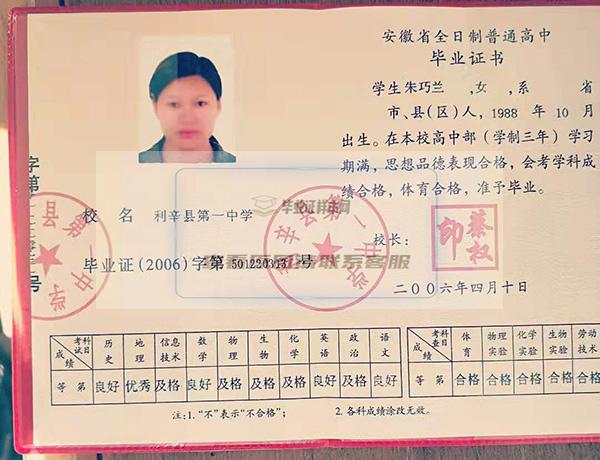 安徽省全日制普通高中
毕业证书
学生朱巧兰 ,女 ,系 省
市、县(区)人, 1988 年 10 月
出生。在本校高中部(学制三年)学习
期满,思想品德表现合格,会考学科成
绩合格,体育合格,准予毕业。
校 名 利辛县第一中学
校长:
毕业证(2006)字第 号
二00六年四月十日
毕业证样网
联系客服
字第
号
考试科目 历史 地理 信息技术 数学 物理 生物 化学 英语 政治 语文
成绩
等 第 良好 优秀 及格 良好 及格 及格 及格 良好 及格 良好
考查科目 体育 物理实验 化学实验 生物实验 劳动技术
成绩
等 第 合格 合格 合格 合格 合格
注:1.“不”表示“不合格”; 2.各科成绩涂改无效。